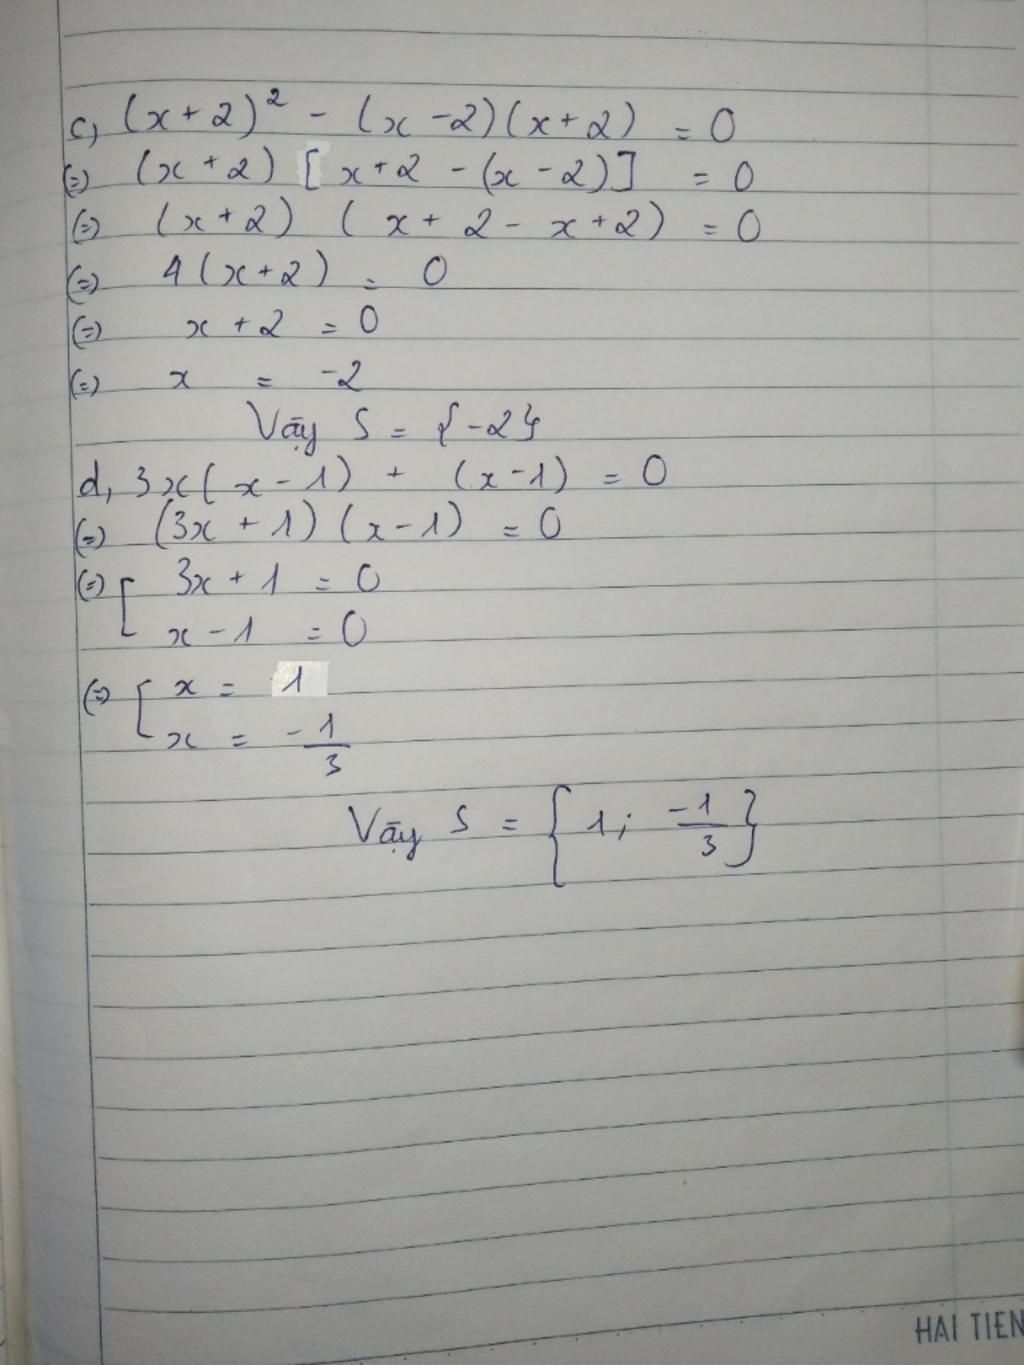 c, (x+2)² - (x-2)(x+2) = 0
(=) (x+2) [x+2 - (x-2)] = 0
(=) (x+2) (x+2-x+2) = 0
(=) 4(x+2) = 0
(=) x+2 = 0
(=) x = -2
Vậy S = {-2}
d, 3x(x-1) + (x-1) = 0
(=) (3x+1)(x-1) = 0
(=) [ 3x+1 = 0
x-1 = 0
(=) [ x = 1
x = -1/3
Vậy S = {1; -1/3}
HAI TIEN